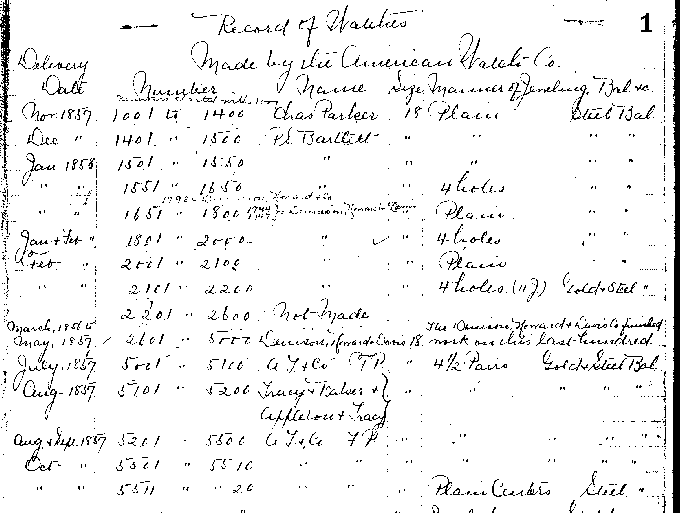 Record of Watches 1
Made by the American Watch Co.
Delivery
Date Number Name Size Manner of Jeweling Bal &c.
Nov. 1857 1001 to 1400 Chas Parker 18 Plain Steel Bal
Dec " 1401 " 1500 P.S. Bartlett " " " "
Jan 1858 1501 " 1550 " " " " "
" " 1551 " 1650 " " 4 holes " "
" " 1651 " 1800 " Plain " "
Jan & Feb " 1801 " 2000 " ✓ " 4 holes " "
Feb " 2001 " 2100 " " Plain " "
2101 " 2200 " " 4 holes (11 J) Gold & Steel "
2201 " 2600 Not Made
March, 1856 to The Dennison, Howard & Davis Co finished
May, 1857 2601 " 5000 Dennison, Howard & Davis 18 work on this last hundred
July, 1857 5001 " 5100 A T & Co T P. " 4 1/2 Pairs Gold & Steel Bal
Aug 1857 5101 " 5200 Tracy & Baker & " " " " "
Appleton & Tracy
Aug & Sept. 1857 5201 " 5500 A T & Co T P " " " " "
Oct " 5501 " 5510 " " " " "
" " 5511 " " 20 " " Plain Centers Steel "